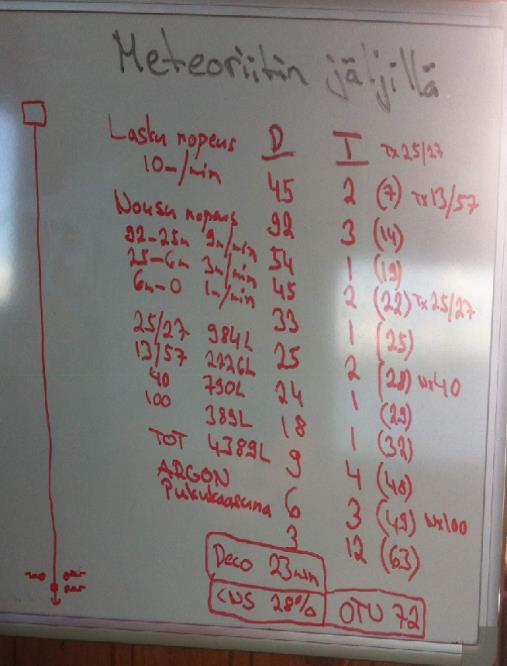 Meteoriitin jäljillä
Lasku nopeus
10m/min
Nousu nopeus
92-25m 9m/min
25-6m 3m/min
6m-0 1m/min
25/27 984L
13/57 2226L
40 790L
100 389L
TOT 4389L
ARGON
Pukukaasuna
D T Tx25/27
45 2 (7) Tx13/57
92 3 (14)
54 1 (19)
45 2 (22) Tx25/27
33 1 (25)
25 2 (28) Nx40
24 1 (29)
18 1 (32)
9 4 (40)
6 3 (49) Nx100
3 12 (63)
Deco 23min
CNS 28% OTU 72